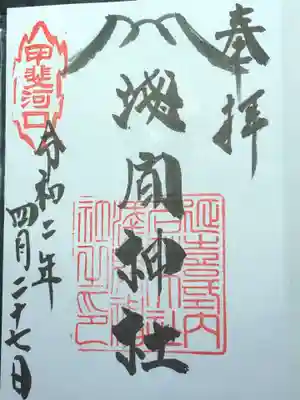 奉拝
延喜式内
淺間神社
甲斐河口
令和二年
四月二十七日